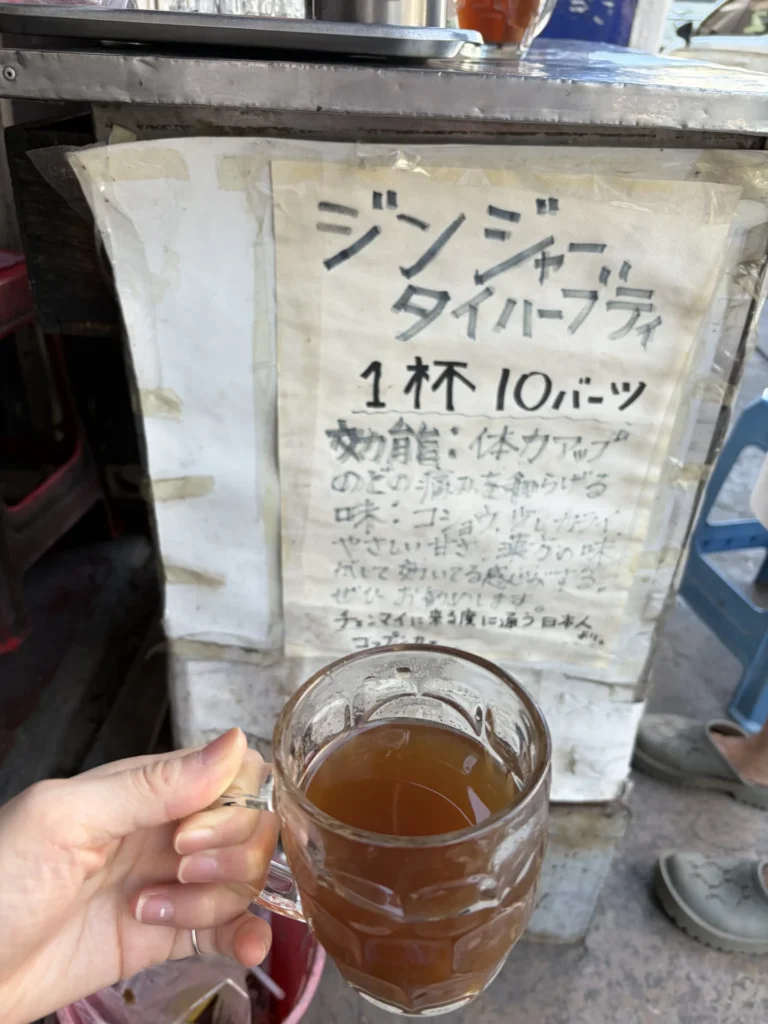 ジンジャー
タイハーブティ
1杯 10バーツ
効能: 体力アップ
のどの痛みを和らげる
味: コショウ、少しカライ、
やさしい甘さ、漢方の味
がして効いてる感じがする。
ぜひ お勧めします。
チェンマイに来る度に通う日本人
より。
コップンカー